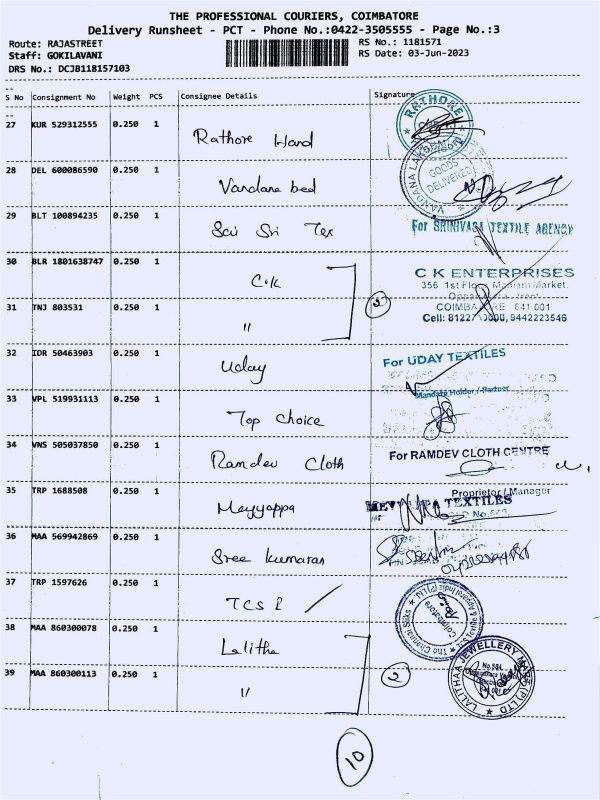 THE PROFESSIONAL COURIERS, COIMBATORE
Delivery Runsheet - PCT - Phone No.:0422-3505555 - Page No.:3
Route: RAJASTREET
RS No.: 1181571
Staff: GOKILAVANI
RS Date: 03-Jun-2023
DRS No.: DCJB118157103
S No Consignment No Weight PCS Consignee Details Signature
27 KUR 529312555 0.250 1 Rathore Hand
RATHORE
28 DEL 600086590 0.250 1 Vandana bed
VANDANA
GOODS DELIVERED
29 BLT 100894235 0.250 1 Sai Sri Tex
For SRINIVASA TEXTILE AGENCY
30 BLR 1801638747 0.250 1 C.K
C K ENTERPRISES
356 1st Floor Market.
31 TNJ 803531 0.250 1 "
2
COIMBATORE 641 001
Cell: 9442223546
32 IDR 50463903 0.250 1 Uday
For UDAY TEXTILES
Mandate Holder / Partner
33 VPL 519931113 0.250 1 Top Choice
34 VNS 505037850 0.250 1 Ramdev Cloth
For RAMDEV CLOTH CENTRE
Proprietor / Manager
35 TRP 1688508 0.250 1 Meyyappa
TEXTILES
36 MAA 569942869 0.250 1 Sree Kumaran
37 TRP 1597626 0.250 1 TCS
The Chennai Silks
Coimbatore
38 MAA 860300078 0.250 1 Lalitha
39 MAA 860300113 0.250 1 "
2
LALITHAA JEWELLERY MART (P) LTD
10